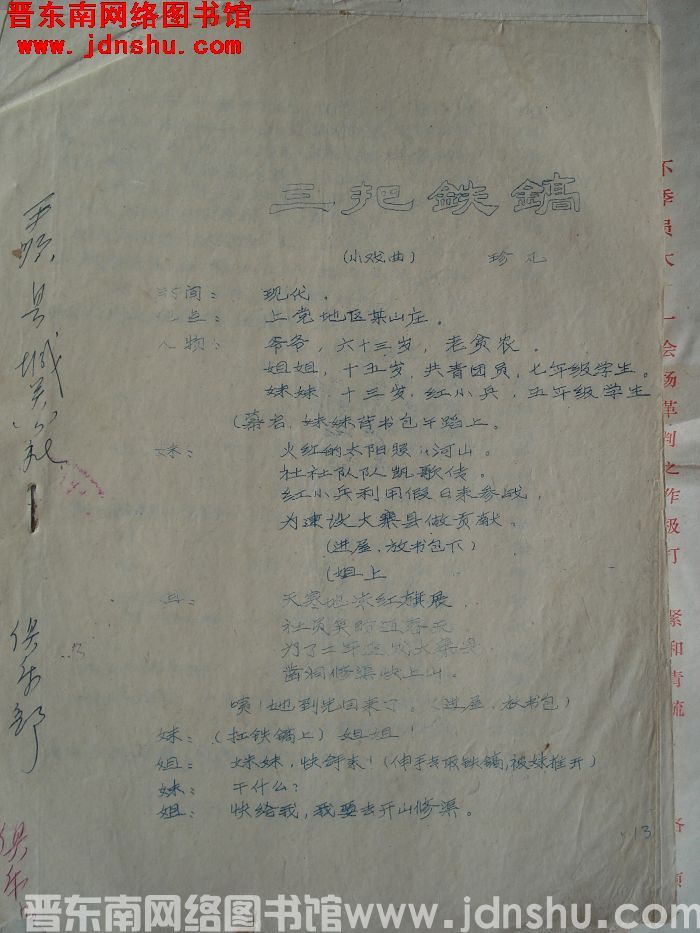 晋东南网络图书馆
www.jdnshu.com
三把鉄鎬
(小戏曲) 珍
时间: 现代。
地点: 上党地区某山庄。
人物: 爷爷,六十三岁,老贫农。
姐姐,十五岁,共青团员,七年级学生。
妹妹,十三岁,红小兵,五年级学生
(幕启,妹妹背书包午蹈上。
妹: 火红的太阳照河山
社社队队凯歌传。
红小兵利用假日来参战,
为建设大寨县做贡献。
(进屋,放书包下)
(姐上
姐: 天寒地冻红旗展
社员
为了 大寨县
凿洞修渠快上山。
咦!她到先回来了。(进屋,放书包)
妹: (扛铁镐上)姐姐
姐: 妹妹,快拿来!(伸手去取铁镐,被妹推开)
妹: 干什么?
姐: 快给我,我要去开山修渠。
13
县城关
俱乐部
俱乐部
晋东南网络图书馆www.jdnshu.com